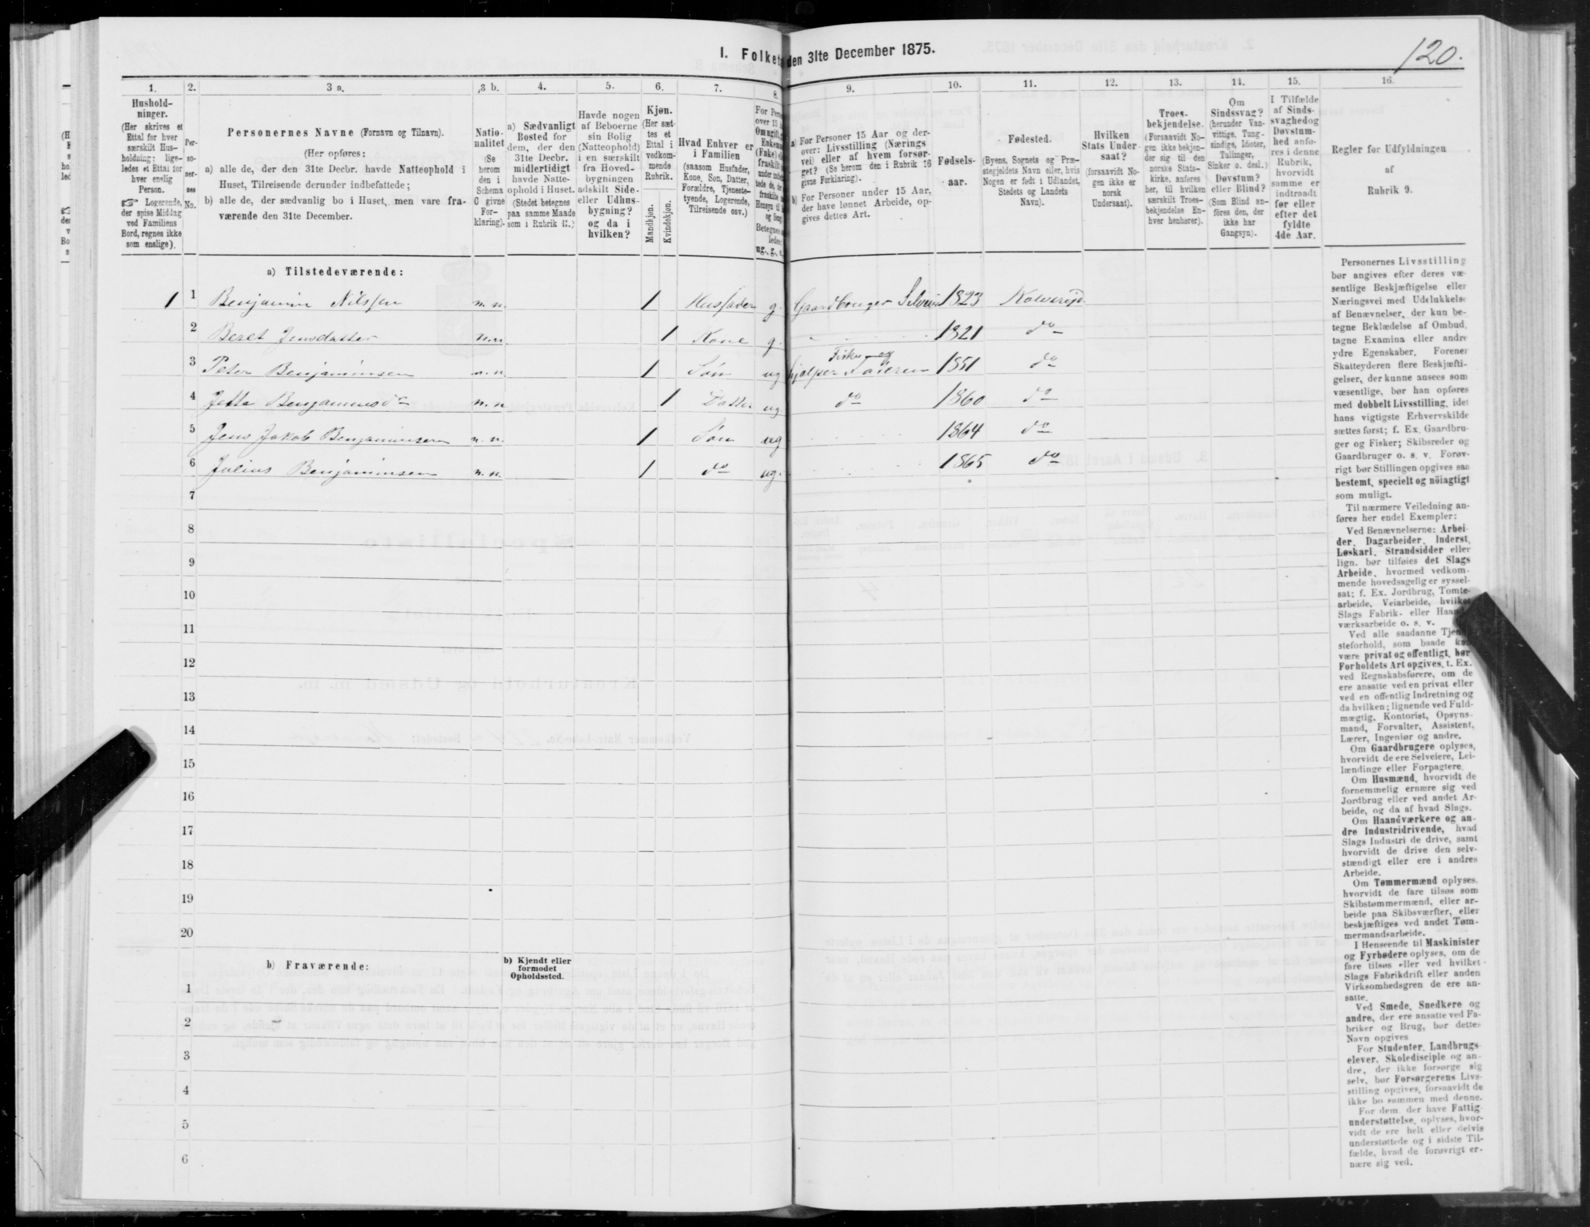 120.
I. Folket den 31te December 1875.
1. 2. 3 a. 3 b. 4. 5. 6. 7. 8. 9. 10. 11. 12. 13. 14. 15. 16.
Hushold-
ninger.
(Her skrives et
Ettal for hver
særskilt Hus-
holdning; lige-
ledes et Ettal for
hver enslig
Person.
☞ Logerende,
der spise Middag
ved Familiens
Bord, regnes ikke
som enslige).
Per-
so-
ner-
nes
No.
Personernes Navne (Fornavn og Tilnavn).
(Her opføres:
a) alle de, der den 31te Decbr. havde Natteophold i
Huset, Tilreisende derunder indbefattede;
b) alle de, der sædvanlig bo i Huset, men vare fra-
værende den 31te December.
Natio-
nalitet
(Se
herom
den i
Schema
givne
For-
klaring).
a) Sædvanligt
Bosted for
dem, der den
31te Decbr.
midlertidigt
havde Natte-
ophold i Huset.
(Stedet betegnes
paa samme Maade
som i Rubrik 11.)
Havde nogen
af Beboerne
sin Bolig
(Natteophold)
i en særskilt
fra Hoved-
bygningen
adskilt Side-
eller Udhus-
bygning?
og da i
hvilken?
Kjøn.
(Her sæt-
tes et
Ettal i
vedkom-
mende
Rubrik.
Mandkjøn.
Kvindekjøn.
Hvad Enhver er
i Familien
(saasom Husfader,
Kone, Søn, Datter,
Forældre, Tjeneste-
tyende, Logerende,
Tilreisende osv.)
a) For Personer 15 Aar og der-
over: Livsstilling (Nærings
vei) eller af hvem forsør-
get? (Se herom den i Rubrik 16
givne Forklaring).
b) For Personer under 15 Aar,
der have lønnet Arbeide, op-
gives dettes Art.
Fødsels-
aar.
Fødested.
(Byens, Sognets og Præ-
stegjeldets Navn eller, hvis
Nogen er født i Udlandet,
Stedets og Landets
Navn).
Hvilken
Stats Under-
saat?
(forsaavidt No-
gen ikke er
norsk
Undersaat).
Troes-
bekjendelse.
(Forsaavidt No-
gen ikke bekjen-
der sig til den
norske Stats-
kirke, anføres
her, til hvilken
særskilt Troes-
bekjendelse En-
hver henhører).
Om
Sindssvag?
(herunder Van-
vittige, Tung-
sindige, Idioter,
Tullinger,
Sinker o. desl.)
Døvstum?
eller Blind?
(Som Blind an-
føres den, der
ikke har
Gangsyn).
I Tilfælde
af Sinds-
svaghed og
Døvstum-
hed anfø-
res i denne
Rubrik,
hvorvidt
samme er
indtraadt
før eller
efter det
fyldte
4de Aar.
Regler for Udfyldningen
af
Rubrik 9.
a) Tilstedeværende:
1 1 Benjamin Nilssen n. n. 1 Husfader g. Gaardbruger Selveier 1823 Kolvereid
2 Beret Jensdatter n. n. 1 Kone g. 1821 do
3 Peter Benjaminsen n. n. 1 Søn ug hjælper Faderen Fisker og 1851 do
4 Jetta Benjaminsd n. n. 1 Datter ug do 1860 do
5 Jens Jakob Benjaminsen n. n. 1 Søn ug 1864 do
6 Julius Benjaminsen n. n. 1 do ug. 1865 do
7
8
9
10
11
12
13
14
15
16
17
18
19
20
b) Fraværende:
b) Kjendt eller
formodet
Opholdssted.
1
2
3
4
5
6
Personernes Livsstilling
bør angives efter deres væ-
sentlige Beskjæftigelse eller
Næringsvei med Udelukkelse
af Benævnelser, der kun be-
tegne Beklædelse af Ombud,
tagne Examina eller andre
ydre Egenskaber. Forener
Skatteyderen flere Beskjæfti-
gelser, der kunne ansees som
væsentlige, bør han opføres
med dobbelt Livsstilling, idet
hans vigtigste Erhvervskilde
sættes først; f. Ex. Gaardbru-
ger og Fisker; Skibsreder og
Gaardbruger o. s. v. Forøv-
rigt bør Stillingen opgives saa
bestemt, specielt og nöiagtigt
som muligt.
Til nærmere Veiledning an-
føres her endel Exempler:
Ved Benævnelserne: Arbei-
der, Dagarbeider, Inderst,
Løskarl, Strandsidder eller
lign. bør tilføies det Slags
Arbeide, hvormed vedkom-
mende hovedsagelig er syssel-
sat; f. Ex. Jordbrug, Tomte-
arbeide, Veiarbeide, hvilket
Slags Fabrik- eller Haand-
værksarbeide o. s. v.
Ved alle saadanne Tjene-
steforhold, som baade kan
være privat og offentligt, bør
Forholdets Art opgives, t. Ex.
ved Regnskabsførere, om de
ere ansatte ved en privat eller
ved en offentlig Indretning og
da hvilken; lignende ved Fuld-
mægtig, Kontorist, Opsyns-
mand, Forvalter, Assistent,
Lærer, Ingeniør og andre.
Om Gaardbrugere oplyses,
hvorvidt de ere Selveiere, Lei-
lændinge eller Forpagtere.
Om Husmænd, hvorvidt de
fornemmelig ernære sig ved
Jordbrug eller ved andet Ar-
beide, og da af hvad Slags.
Om Haandværkere og an-
dre Industridrivende, hvad
Slags Industri de drive, samt
hvorvidt de drive den selv-
stændigt eller ere i andres
Arbeide.
Om Tømmermænd oplyses,
hvorvidt de fare tilsøs som
Skibstømmermænd, eller ar-
beide paa Skibsværfter, eller
beskjæftiges ved andet Tøm-
mermandsarbeide.
I Henseende til Maskinister
og Fyrbødere oplyses, om de
fare tilsøs eller ved hvilket
Slags Fabrikdrift eller anden
Virksomhedsgren de ere an-
satte.
Ved Smede, Snedkere og
andre, der ere ansatte ved Fa-
briker og Brug, bør dettes
Navn opgives
For Studenter, Landbrugs-
elever, Skoledisciple og an-
dre, der ikke forsørge sig
selv, bør Forsørgerens Livs-
stilling opgives, forsaavidt de
ikke bo sammen med denne.
For dem, der have Fattig-
understøttelse, oplyses, hvor-
vidt de ere helt eller delvis
understøttede og i sidste Til-
fælde, hvad de forøvrigt er-
nære sig ved.